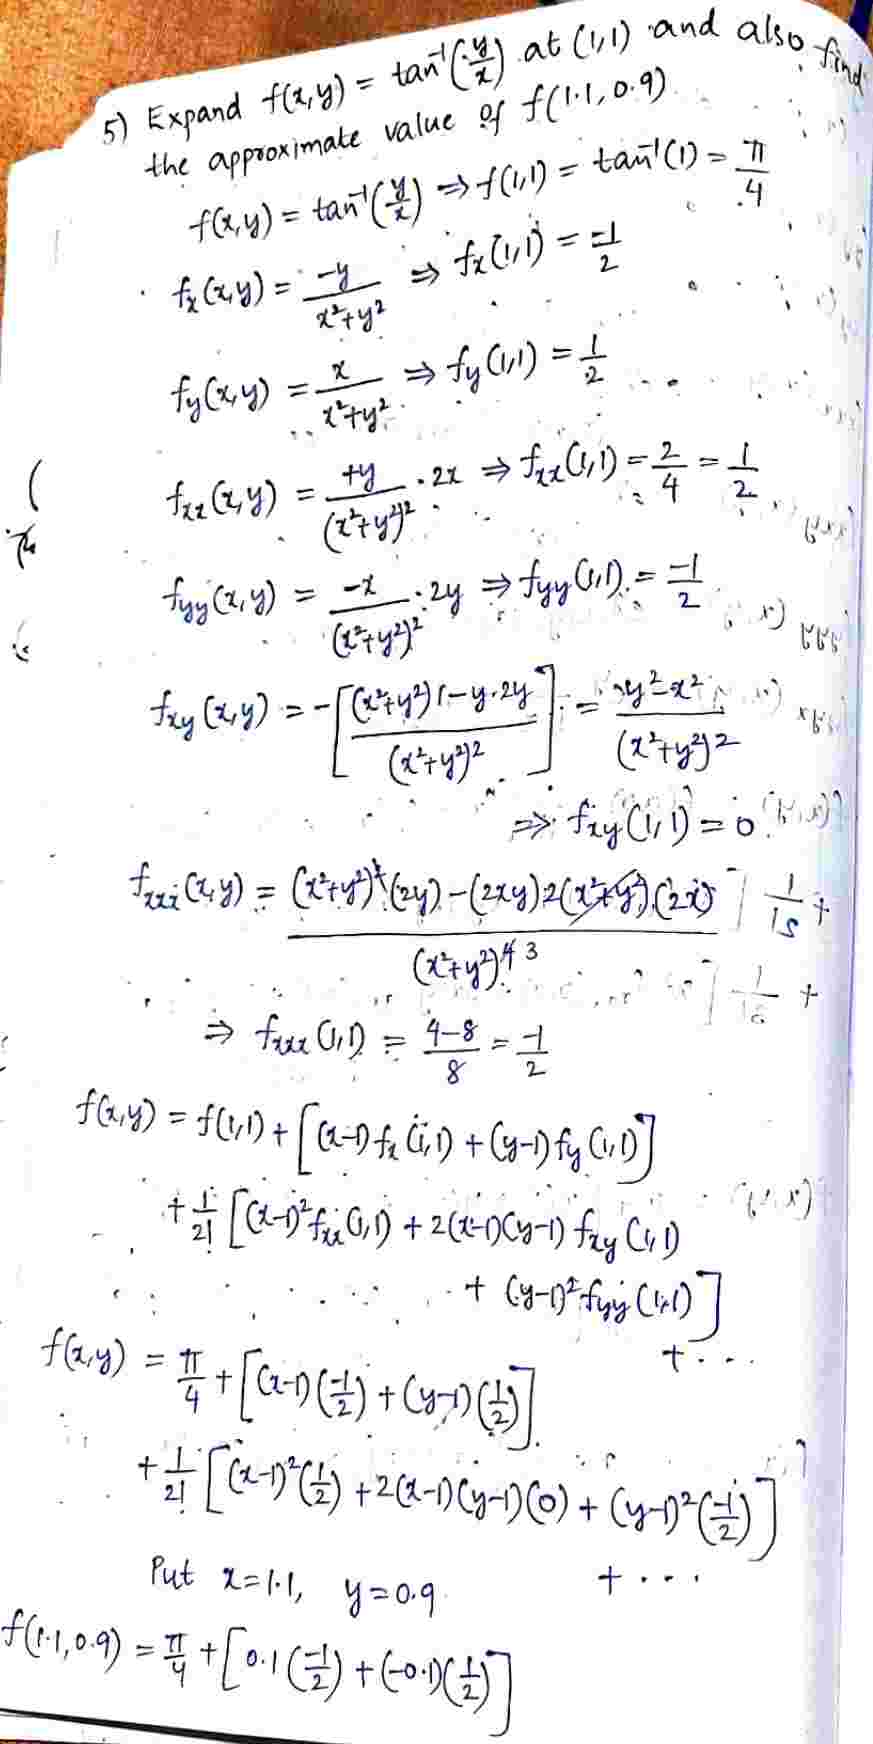 5) Expand f(x,y) = tan⁻¹(y/x) at (1,1) and also find
the approximate value of f(1.1, 0.9)
f(x,y) = tan⁻¹(y/x) ⇒ f(1,1) = tan⁻¹(1) = π/4
fx(x,y) = -y/(x²+y²) ⇒ fx(1,1) = -1/2
fy(x,y) = x/(x²+y²) ⇒ fy(1,1) = 1/2
fxx(x,y) = +y/(x²+y²)² · 2x ⇒ fxx(1,1) = 2/4 = 1/2
fyy(x,y) = -x/(x²+y²)² · 2y ⇒ fyy(1,1) = -1/2
fxy(x,y) = -[((x²+y²)1 - y·2y)/(x²+y²)²] = (y²-x²)/(x²+y²)²
⇒ fxy(1,1) = 0
fxxx(x,y) = ((x²+y²)²(2y) - (2xy)2(x²+y²)(2x))/(x²+y²)⁴ ³
⇒ fxxx(1,1) = (4-8)/8 = -1/2
f(x,y) = f(1,1) + [(x-1)fx(1,1) + (y-1)fy(1,1)]
+ 1/2! [(x-1)²fxx(1,1) + 2(x-1)(y-1) fxy(1,1)
+ (y-1)²fyy(1,1)]
+ ...
f(x,y) = π/4 + [(x-1)(-1/2) + (y-1)(1/2)]
+ 1/2! [(x-1)²(1/2) + 2(x-1)(y-1)(0) + (y-1)²(-1/2)]
+ ...
Put x=1.1, y=0.9
f(1.1,0.9) = π/4 + [0.1(-1/2) + (-0.1)(1/2)]